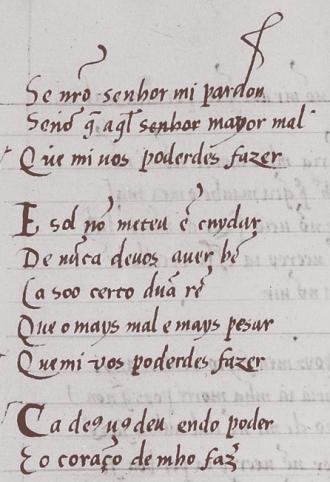 Se nrō senhor mi pardon
Senō q̄ aq̄l senhor mayor mal
Que mi vos poderdes fazer
E sol nō meteu ē cuydar
De nūca deuos auer bē
Ca soo certo duā rē
Que o mays mal e mays pesar
Que mi vos poderdes fazer
Ca deꝯ uꝯ deu endo poder
E o coraçō de mho faz̄